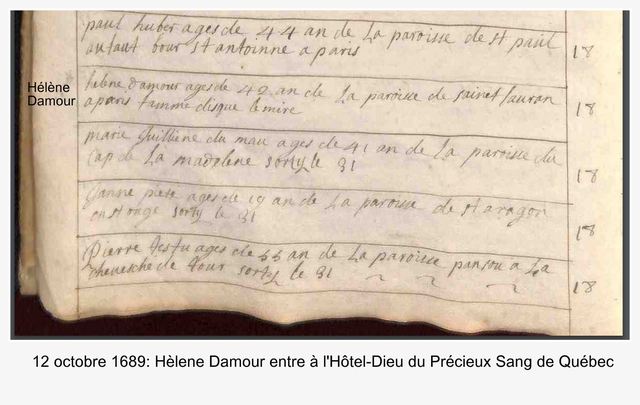 paul huber ages de 44 an de La paroisse de st paul
autaut pour st antoinne a paris
18
Hélène
Damour
helene damour ages de 42 an de La paroisse de sainct lauran
a paris famme disque lemire
18
marie Guilliene du mau ages de 41 an de La paroisse du
Cap de La madelene sorty le 31
18
Janne piete ages de 19 an de La paroisse de st aragon
en st onge sorty le 31
18
Pierre testu ages de 55 an de La paroisse pansou a La
chevesche de tour sorty le 31
18
12 octobre 1689: Hèlene Damour entre à l'Hôtel-Dieu du Précieux Sang de Québec